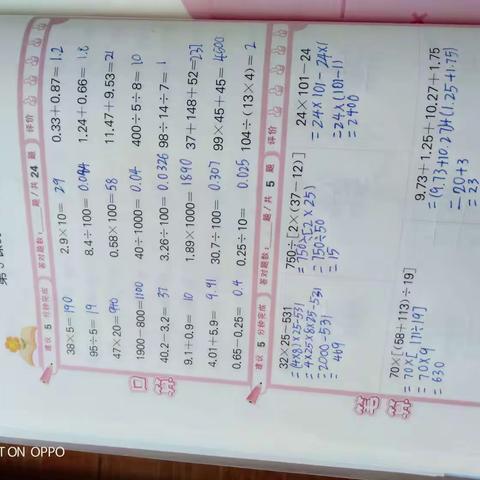 建议 5 分钟完成 答对题数: 题/共 24 题 评价
口算
38×5=190 2.9×10=29 0.33+0.87=1.2
95÷5=19 8.4÷100=0.084 1.24+0.66=1.8
47×20=940 0.58×100=58 11.47+9.53=21
1900−800=1100 40÷1000=0.04 400÷5÷8=10
40.2−3.2=37 3.26÷100=0.0326 98÷14÷7=1
9.1+0.9=10 1.89×1000=1890 37+148+52=237
4.01+5.9=9.91 30.7÷100=0.307 99×45+45=4500
0.65−0.25=0.4 0.25÷10=0.025 104÷(13×4)=2
建议 5 分钟完成 答对题数: 题/共 5 题 评价
笔算
32×25−531 750÷[2×(37−12)] 24×101−24
=(4×8)×25−531 =750÷[2×25) =24×101−24×1
=4×25×8×25−531 =750÷50 =24×(101−1)
=2000−531 =15 =2400
=469
70×[(58+113)÷19] 9.73+1.25+10.27+1.75
=70×[171÷19] =(9.73+10.27)+(1.25+1.75)
=70×9 =20+3
=630 =23
ON OPPO